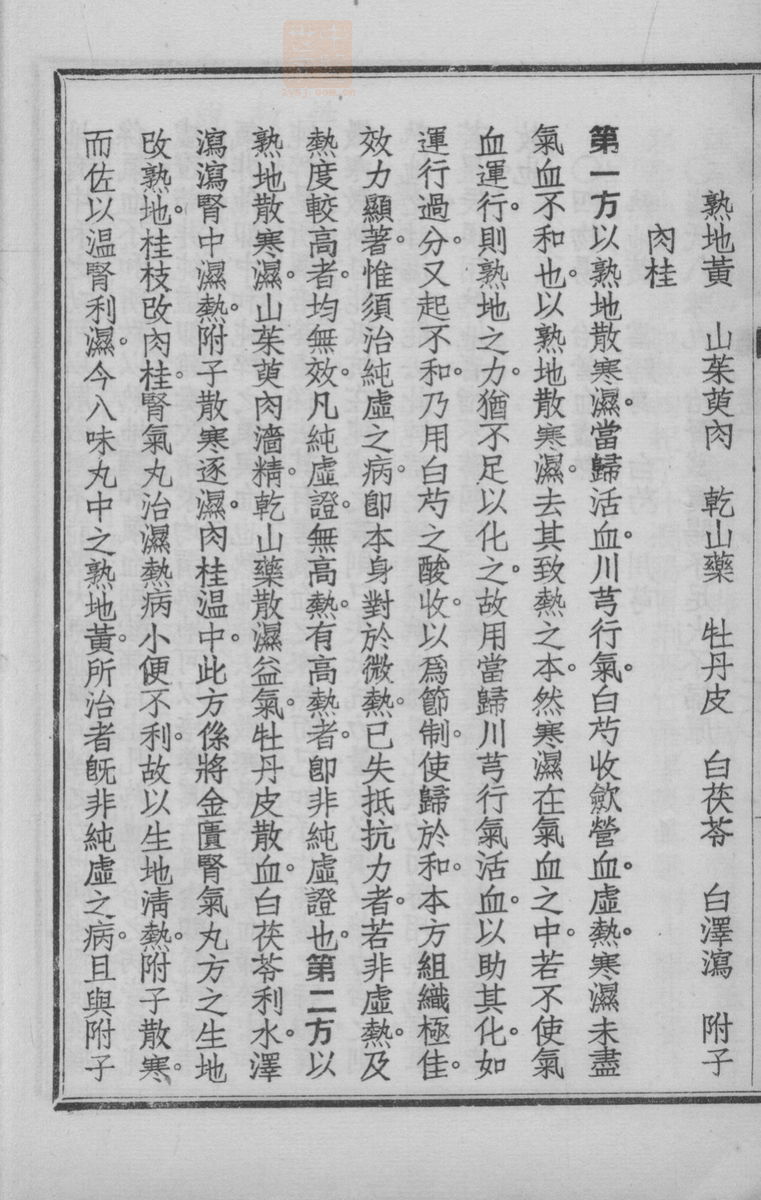 熟地黃　山茱萸肉　乾山藥　牡丹皮　白茯苓　白澤瀉　附子
肉桂
第一方以熟地散寒濕。當歸活血。川芎行氣。白芍收歛營血。虛熱。寒濕未盡
氣血不和也。以熟地散寒濕。去其致熱之本。然寒濕在氣血之中。若不使氣
血運行。則熟地之力。猶不足以化之。故用當歸川芎行氣活血。以助其化。如
運行過分。又起不和。乃用白芍之酸收。以爲節制。使歸於和。本方組織極佳。
效力顯著。惟須治純虛之病。卽本身對於微熱。已失抵抗力者。若非虛熱。及
熱度較高者。均無效。凡純虛證。無高熱。有高熱者。卽非純虛證也。第二方以
熟地散寒濕。山茱萸肉濇精。乾山藥散濕益氣。牡丹皮散血。白茯苓利水。澤
瀉瀉腎中濕熱。附子散寒逐濕。肉桂温中。此方係將金匱腎氣丸方之生地
改熟地。桂枝改肉桂。腎氣丸治濕熱病小便不利。故以生地清熱。附子散寒、
而佐以温腎利濕。今八味丸中之熟地黃。所治者旣非純虛之病。且與附子